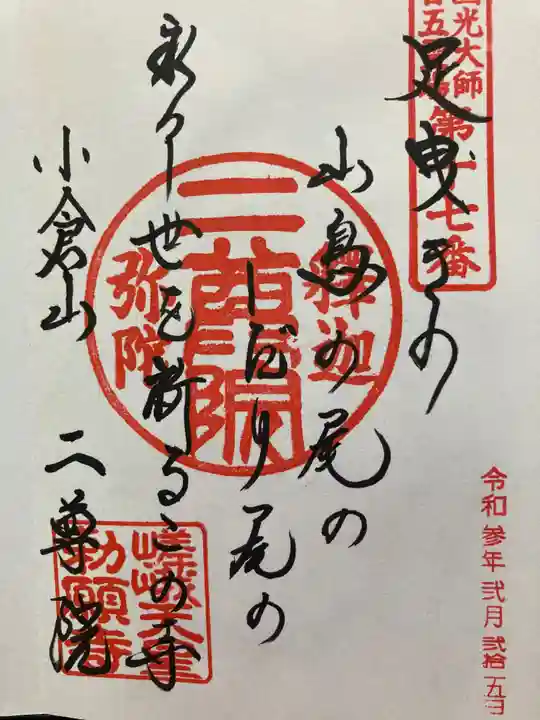 圓光大師
廿五霊場
第十七番
足曳きの
山鳥の尾の
しだり尾の
永し世を祈るこの寺
小倉山 二尊院
釋迦
二尊院
弥陀
勅願寺
令和参年弐月弐拾五日